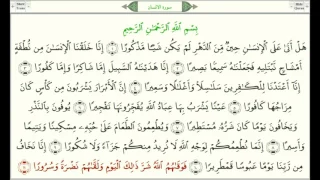 سورة الانسان
بِسْمِ ٱللَّهِ ٱلرَّحْمَٰنِ ٱلرَّحِيمِ
هَلْ أَتَىٰ عَلَى ٱلْإِنسَٰنِ حِينٌ مِّنَ ٱلدَّهْرِ لَمْ يَكُن شَيْـًٔا مَّذْكُورًا ۝ إِنَّا خَلَقْنَا ٱلْإِنسَٰنَ مِن نُّطْفَةٍ
أَمْشَاجٍ نَّبْتَلِيهِ فَجَعَلْنَٰهُ سَمِيعًۢا بَصِيرًا ۝ إِنَّا هَدَيْنَٰهُ ٱلسَّبِيلَ إِمَّا شَاكِرًا وَإِمَّا كَفُورًا ۝
إِنَّآ أَعْتَدْنَا لِلْكَٰفِرِينَ سَلَٰسِلَا۟ وَأَغْلَٰلًا وَسَعِيرًا ۝ إِنَّ ٱلْأَبْرَارَ يَشْرَبُونَ مِن كَأْسٍ كَانَ
مِزَاجُهَا كَافُورًا ۝ عَيْنًا يَشْرَبُ بِهَا عِبَادُ ٱللَّهِ يُفَجِّرُونَهَا تَفْجِيرًا ۝ يُوفُونَ بِٱلنَّذْرِ
وَيَخَافُونَ يَوْمًا كَانَ شَرُّهُۥ مُسْتَطِيرًا ۝ وَيُطْعِمُونَ ٱلطَّعَامَ عَلَىٰ حُبِّهِۦ مِسْكِينًا وَيَتِيمًا
وَأَسِيرًا ۝ إِنَّمَا نُطْعِمُكُمْ لِوَجْهِ ٱللَّهِ لَا نُرِيدُ مِنكُمْ جَزَآءً وَلَا شُكُورًا ۝ إِنَّا نَخَافُ
مِن رَّبِّنَا يَوْمًا عَبُوسًا قَمْطَرِيرًا ۝ فَوَقَىٰهُمُ ٱللَّهُ شَرَّ ذَٰلِكَ ٱلْيَوْمِ وَلَقَّىٰهُمْ نَضْرَةً وَسُرُورًا ۝